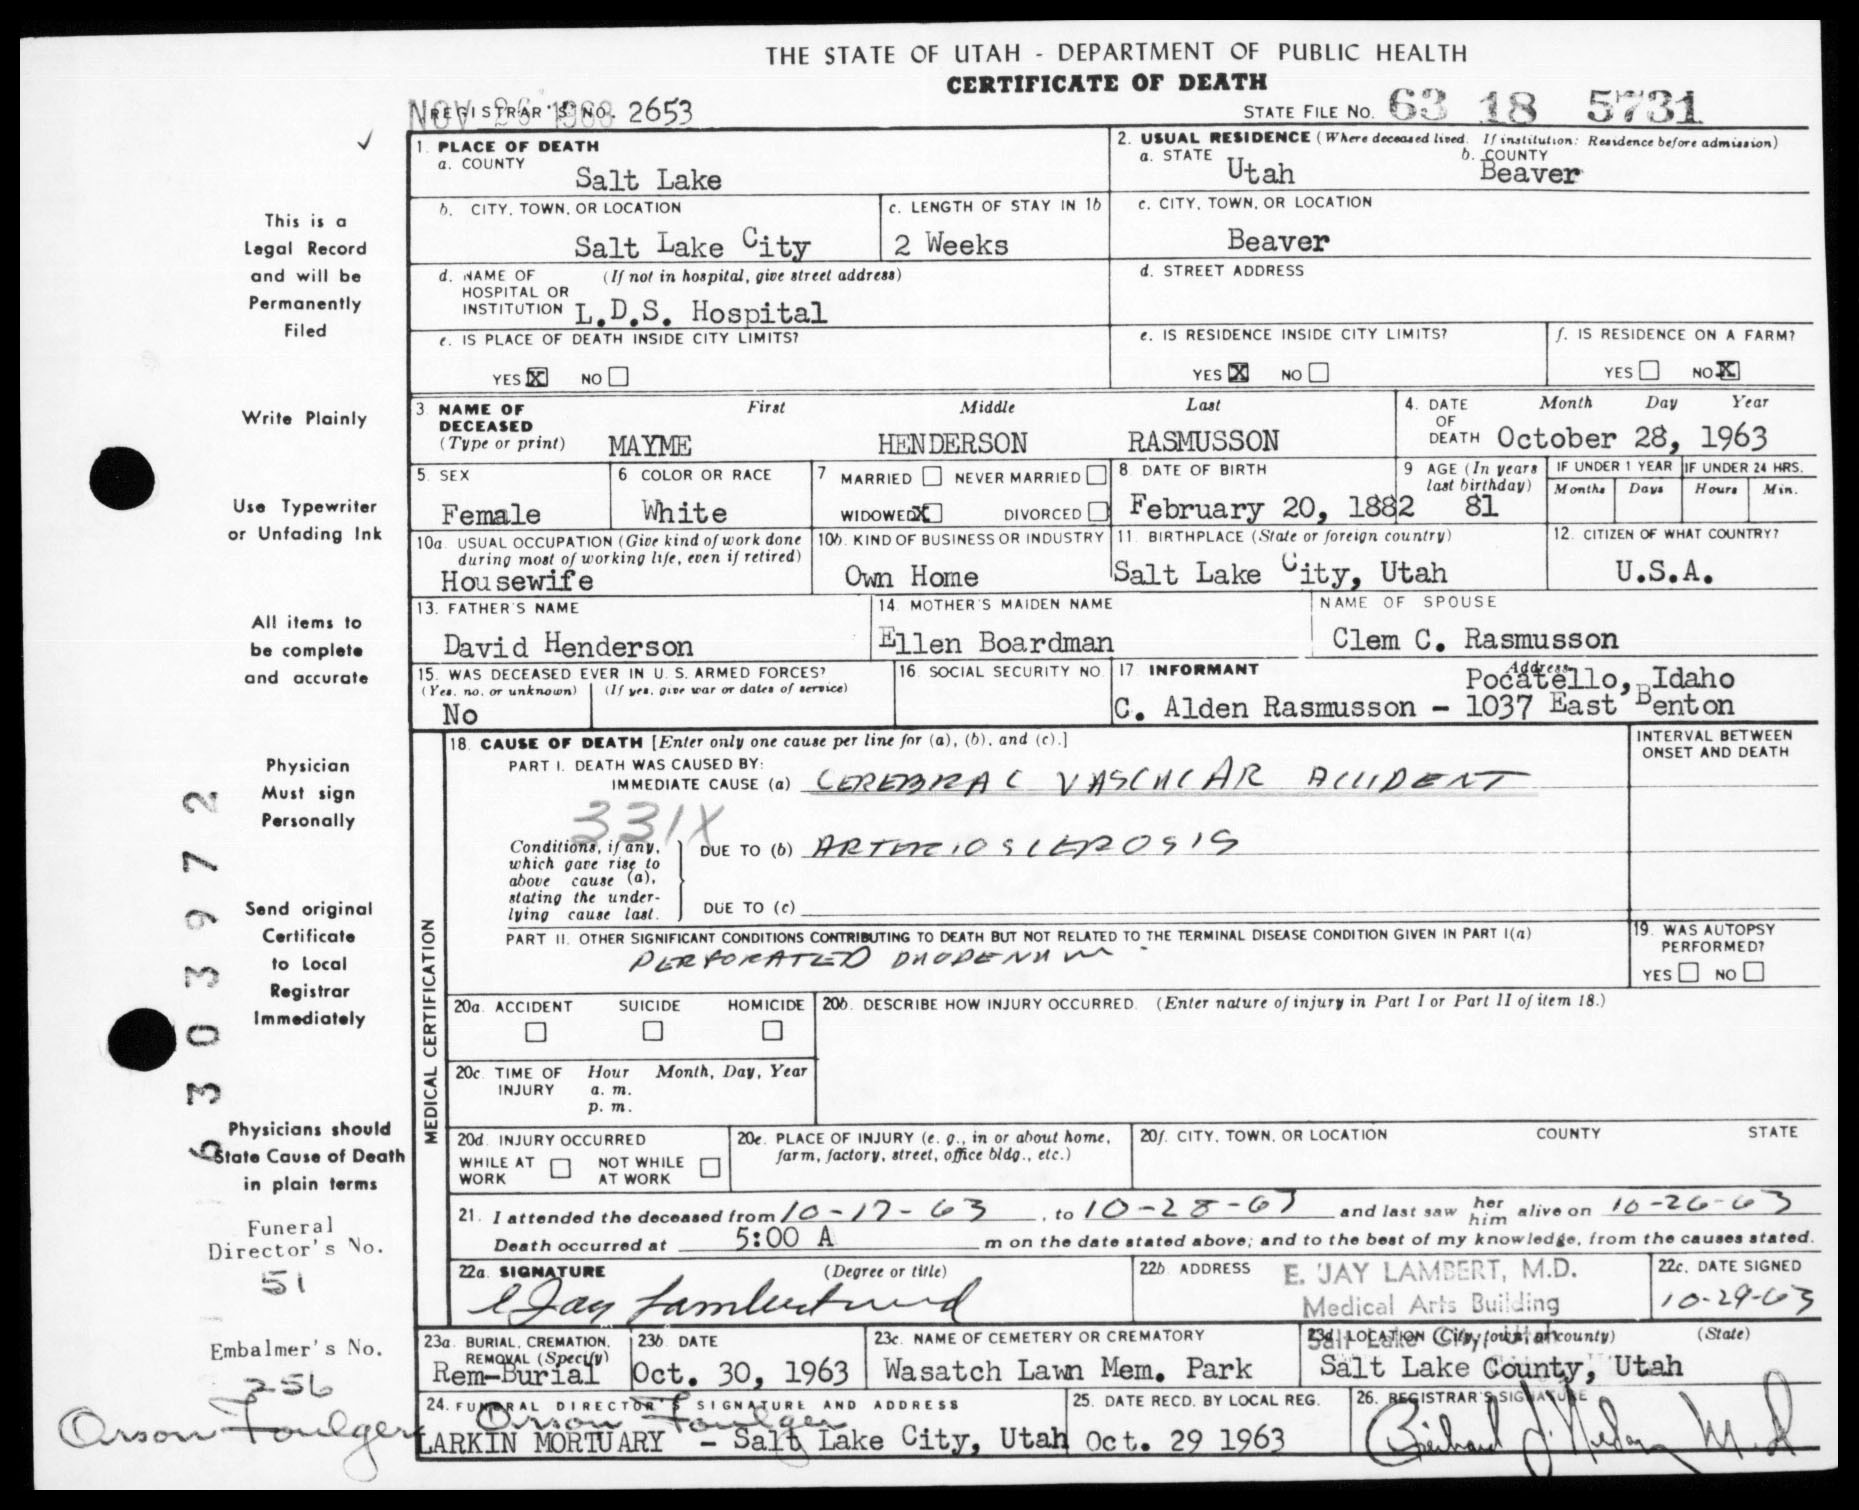 THE STATE OF UTAH - DEPARTMENT OF PUBLIC HEALTH
CERTIFICATE OF DEATH
NOV 26 1963
REGISTRAR'S NO. 2653
STATE FILE NO. 63 18 5731
1. PLACE OF DEATH
a. COUNTY
Salt Lake
2. USUAL RESIDENCE (Where deceased lived. If institution: Residence before admission)
a. STATE Utah b. COUNTY Beaver
b. CITY, TOWN, OR LOCATION
Salt Lake City
c. LENGTH OF STAY IN 1b
2 Weeks
c. CITY, TOWN, OR LOCATION
Beaver
d. NAME OF HOSPITAL OR INSTITUTION (If not in hospital, give street address)
L.D.S. Hospital
d. STREET ADDRESS
e. IS PLACE OF DEATH INSIDE CITY LIMITS?
YES X NO
e. IS RESIDENCE INSIDE CITY LIMITS?
YES X NO
f. IS RESIDENCE ON A FARM?
YES NO X
3. NAME OF DECEASED (Type or print)
First Middle Last
MAYME HENDERSON RASMUSSON
4. DATE OF DEATH Month Day Year
October 28, 1963
5. SEX
Female
6 COLOR OR RACE
White
7 MARRIED NEVER MARRIED
WIDOWED X DIVORCED
8 DATE OF BIRTH
February 20, 1882
9 AGE (In years last birthday)
81
IF UNDER 1 YEAR
Months Days
IF UNDER 24 HRS.
Hours Min.
10a. USUAL OCCUPATION (Give kind of work done during most of working life, even if retired)
Housewife
10b. KIND OF BUSINESS OR INDUSTRY
Own Home
11. BIRTHPLACE (State or foreign country)
Salt Lake City, Utah
12. CITIZEN OF WHAT COUNTRY?
U.S.A.
13. FATHER'S NAME
David Henderson
14. MOTHER'S MAIDEN NAME
Ellen Boardman
NAME OF SPOUSE
Clem C. Rasmusson
15. WAS DECEASED EVER IN U. S. ARMED FORCES?
(Yes, no, or unknown) (If yes, give war or dates of service)
No
16. SOCIAL SECURITY NO.
17 INFORMANT Address
Pocatello, Idaho
C. Alden Rasmusson - 1037 East Benton
MEDICAL CERTIFICATION
18. CAUSE OF DEATH [Enter only one cause per line for (a), (b), and (c).]
INTERVAL BETWEEN ONSET AND DEATH
PART I. DEATH WAS CAUSED BY:
IMMEDIATE CAUSE (a) CEREBRAL VASCULAR ACCIDENT
331X
Conditions, if any, which gave rise to above cause (a), stating the underlying cause last.
DUE TO (b) ARTERIOSCLEROSIS
DUE TO (c)
PART II. OTHER SIGNIFICANT CONDITIONS CONTRIBUTING TO DEATH BUT NOT RELATED TO THE TERMINAL DISEASE CONDITION GIVEN IN PART I(a)
PERFORATED DUODENUM
19. WAS AUTOPSY PERFORMED?
YES NO
20a. ACCIDENT SUICIDE HOMICIDE
20b. DESCRIBE HOW INJURY OCCURRED. (Enter nature of injury in Part I or Part II of item 18.)
20c. TIME OF INJURY Hour Month, Day, Year
a. m.
p. m.
20d. INJURY OCCURRED
WHILE AT WORK NOT WHILE AT WORK
20e. PLACE OF INJURY (e. g., in or about home, farm, factory, street, office bldg., etc.)
20f. CITY, TOWN, OR LOCATION COUNTY STATE
21. I attended the deceased from 10-17-63, to 10-28-63 and last saw her him alive on 10-26-63
Death occurred at 5:00 A m on the date stated above; and to the best of my knowledge, from the causes stated.
22a. SIGNATURE (Degree or title)
E Jay Lambert md
22b. ADDRESS
E. JAY LAMBERT, M.D.
Medical Arts Building
Salt Lake City, Utah
22c. DATE SIGNED
10-29-63
23a. BURIAL, CREMATION, REMOVAL (Specify)
Rem-Burial
23b. DATE
Oct. 30, 1963
23c. NAME OF CEMETERY OR CREMATORY
Wasatch Lawn Mem. Park
23d. LOCATION (City, town, or county) (State)
Salt Lake County, Utah
24. FUNERAL DIRECTOR'S SIGNATURE AND ADDRESS
Orson Foulger
LARKIN MORTUARY - Salt Lake City, Utah
25. DATE RECD. BY LOCAL REG.
Oct. 29 1963
26. REGISTRAR'S SIGNATURE
This is a
Legal Record
and will be
Permanently
Filed
Write Plainly
Use Typewriter
or Unfading Ink
All items to
be complete
and accurate
Physician
Must sign
Personally
Send original
Certificate
to Local
Registrar
Immediately
Physicians should
State Cause of Death
in plain terms
6303972
Funeral
Director's No.
51
Embalmer's No.
256
Orson Foulger